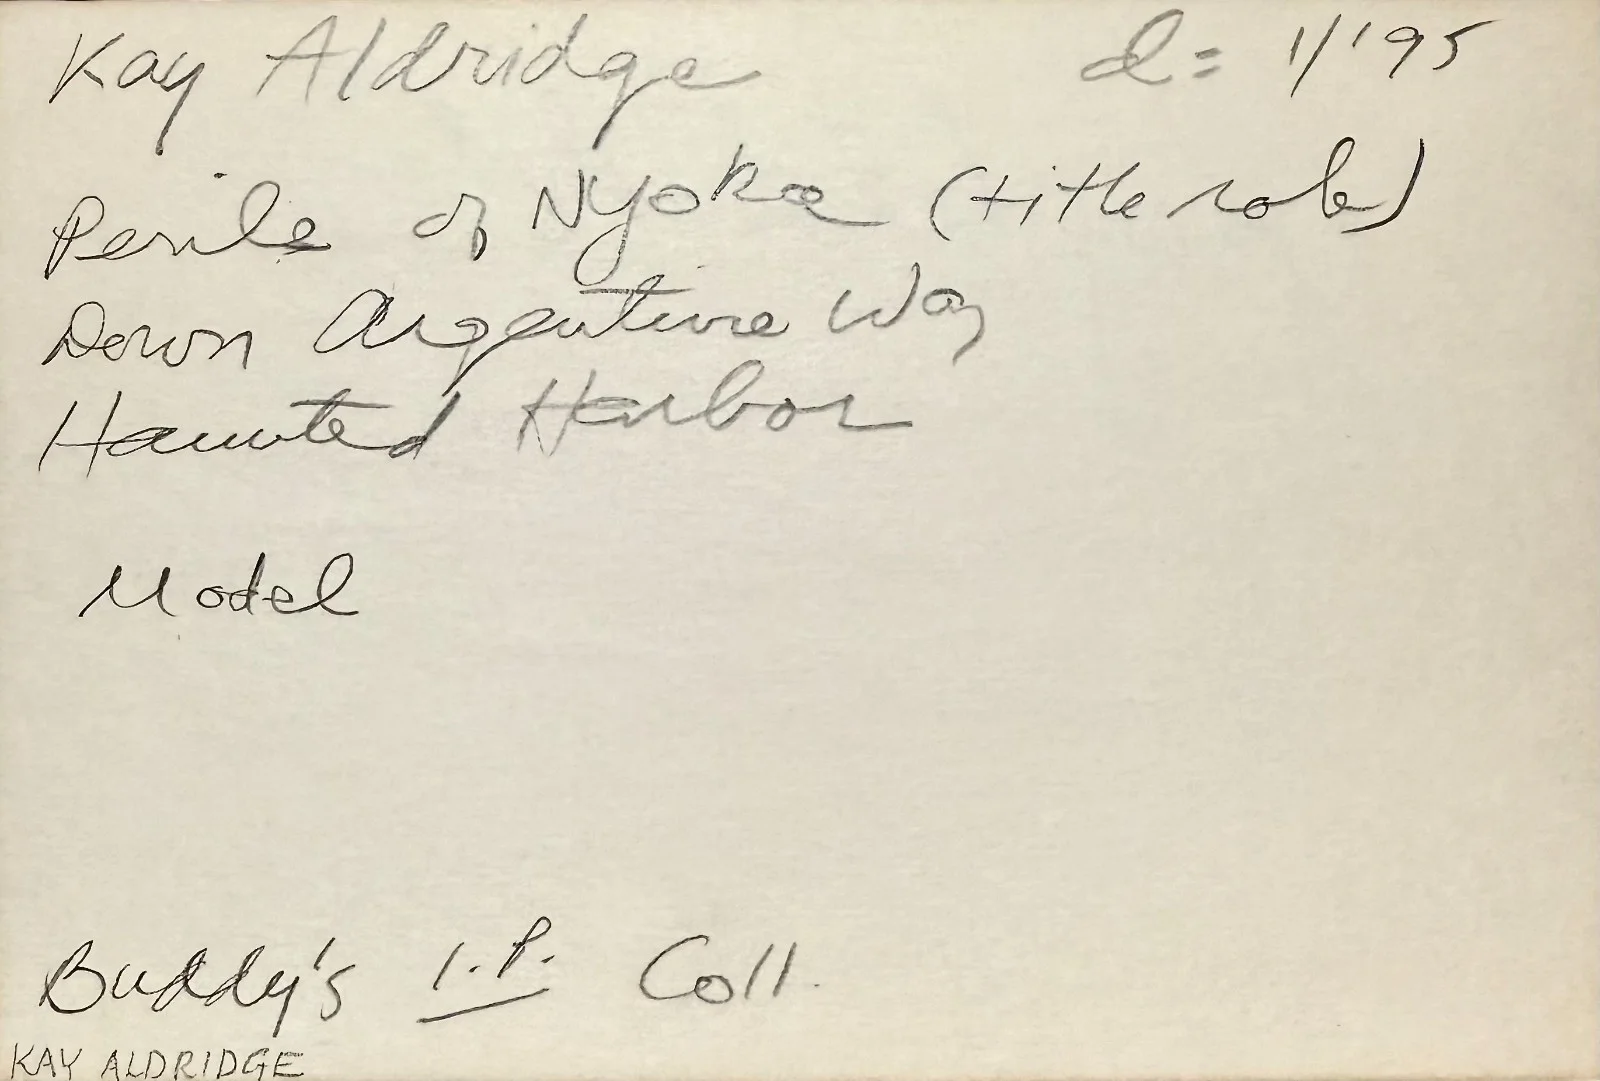 Kay Aldridge d= 1/'95
Perils of Nyoka (title role)
Down Argentine Way
Haunted Harbor
Model
Buddy's I.P. Coll.
KAY ALDRIDGE